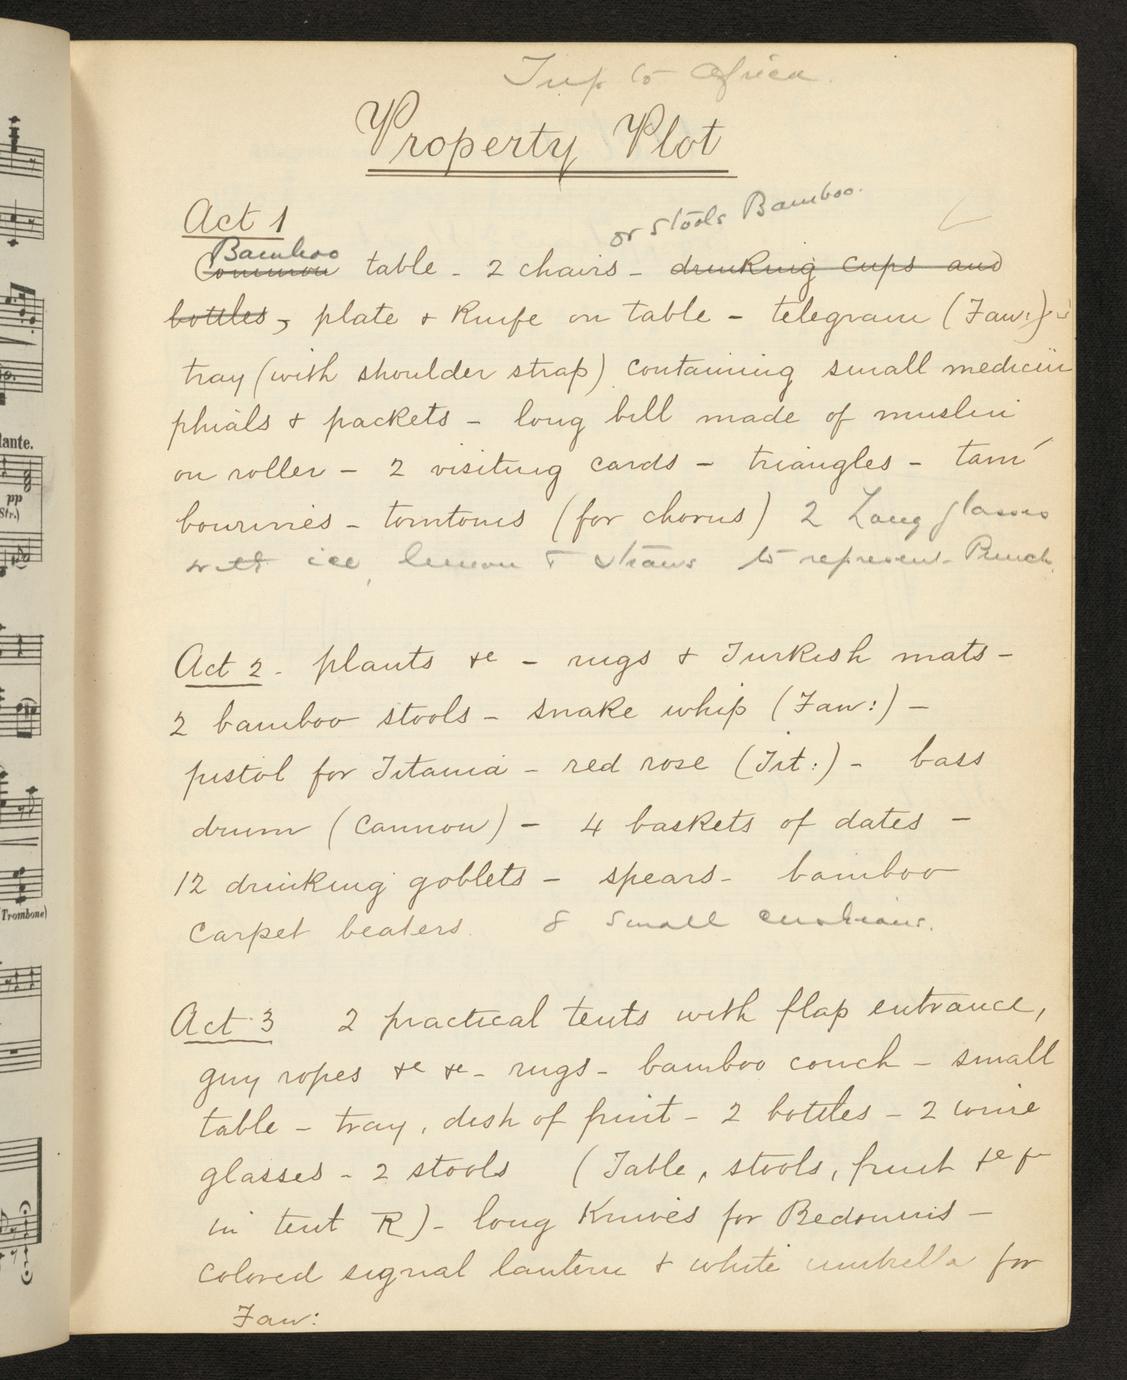 Trip to Africa.
Property Plot
Act 1
or stools Bamboo.
Bamboo
Common table - 2 chairs - drinking cups and
bottles, plate & Knife on table - telegram (Faw:)
tray (with shoulder strap) containing small medicin
phials & packets - long bill made of muslin
on roller - 2 visiting cards - triangles - tam
bourines - tomtoms (for chorus) 2 Long glasses
with ice, lemon & straws to represent Punch
Act 2 - plants &c - rugs & Turkish mats -
2 bamboo stools - snake whip (Faw:) -
pistol for Titania - red rose (Tit:) - bass
drum (Cannon) - 4 baskets of dates -
12 drinking goblets - spears - bamboo
carpet beaters. 8 small cushions.
Act 3 2 practical tents with flap entrance,
guy ropes &c &c - rugs - bamboo couch - small
table - tray, dish of fruit - 2 bottles - 2 wine
glasses - 2 stools (Table, stools, fruit &c
in tent R) - long Knives for Bedouins -
colored signal lantern & white umbrella for
Faw:
lante.
pp
Str.)
(Trombone)